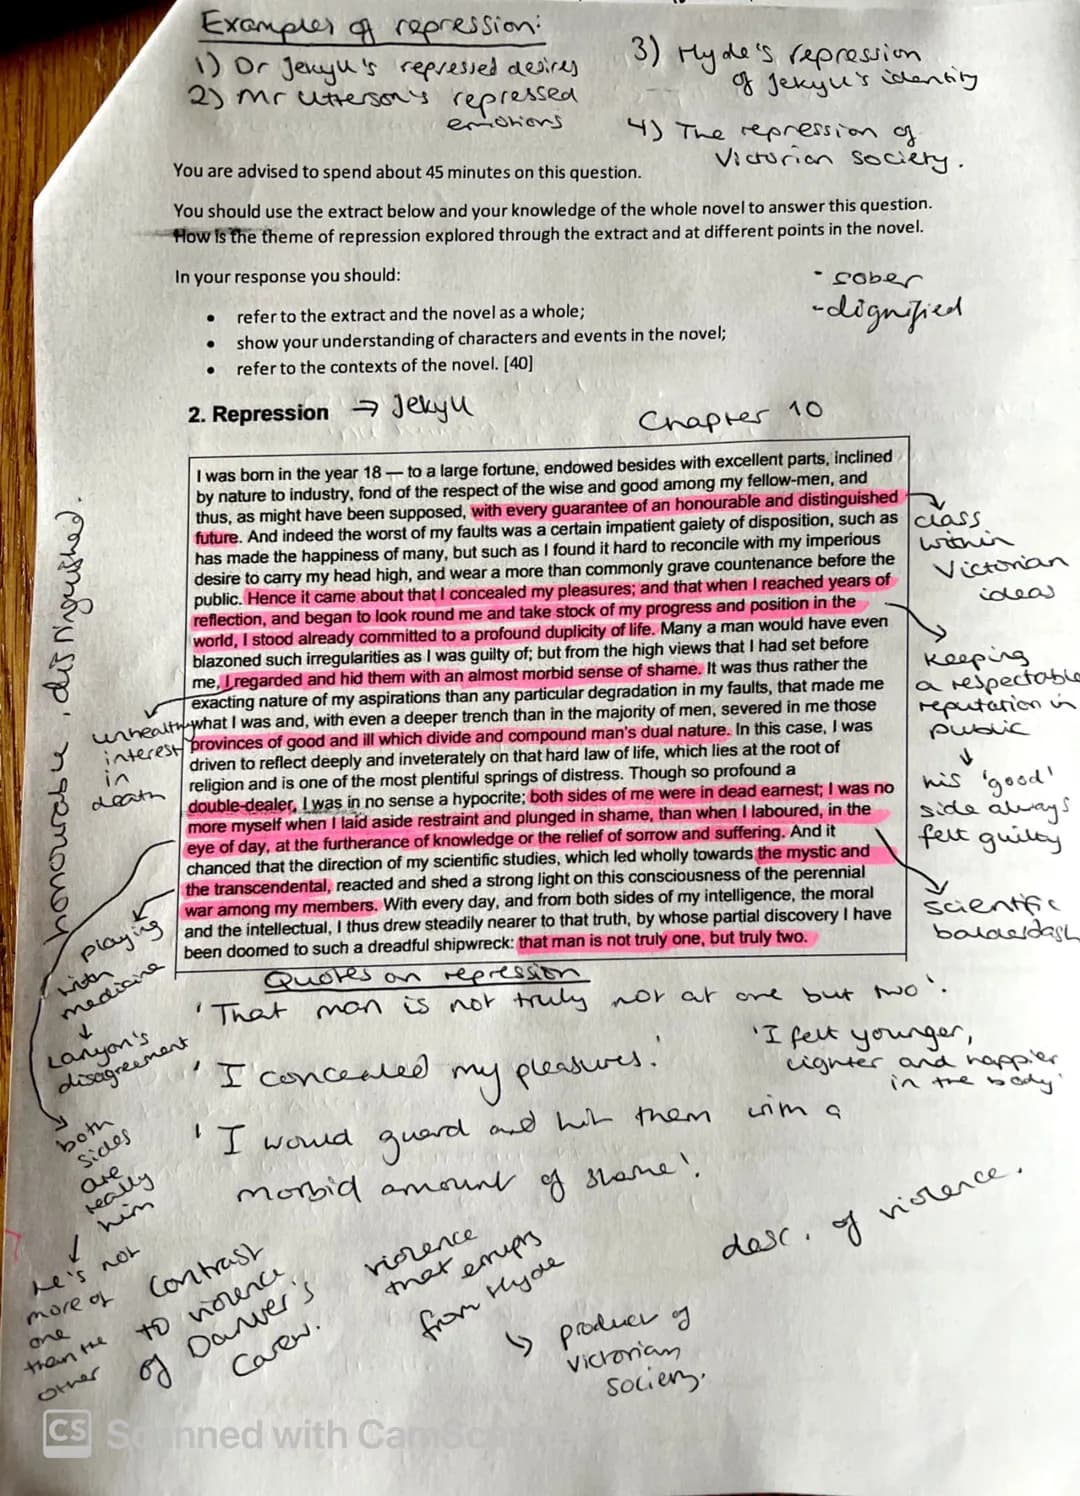 Examples of repression:
1) Dr Jekyll's repressed desires
2) Mr Utterson's repressed
emotions
3) Hyde's repression
of Jekyll's identity
4) The repression of
Victorian society.
You are advised to spend about 45 minutes on this question.
You should use the extract below and your knowledge of the whole novel to answer this question.
How is the theme of repression explored through the extract and at different points in the novel.
In your response you should:
- sober
- dignified
• refer to the extract and the novel as a whole;
• show your understanding of characters and events in the novel;
• refer to the contexts of the novel. [40]
2. Repression → Jekyll
Chapter 10
I was born in the year 18 — to a large fortune, endowed besides with excellent parts, inclined
by nature to industry, fond of the respect of the wise and good among my fellow-men, and
thus, as might have been supposed, with every guarantee of an honourable and distinguished
future. And indeed the worst of my faults was a certain impatient gaiety of disposition, such as
has made the happiness of many, but such as I found it hard to reconcile with my imperious
desire to carry my head high, and wear a more than commonly grave countenance before the
public. Hence it came about that I concealed my pleasures; and that when I reached years of
reflection, and began to look round me and take stock of my progress and position in the
world, I stood already committed to a profound duplicity of life. Many a man would have even
blazoned such irregularities as I was guilty of; but from the high views that I had set before
me, I regarded and hid them with an almost morbid sense of shame. It was thus rather the
exacting nature of my aspirations than any particular degradation in my faults, that made me
what I was and, with even a deeper trench than in the majority of men, severed in me those
provinces of good and ill which divide and compound man's dual nature. In this case, I was
driven to reflect deeply and inveterately on that hard law of life, which lies at the root of
religion and is one of the most plentiful springs of distress. Though so profound a
double-dealer, I was in no sense a hypocrite; both sides of me were in dead earnest; I was no
more myself when I laid aside restraint and plunged in shame, than when I laboured, in the
eye of day, at the furtherance of knowledge or the relief of sorrow and suffering. And it
chanced that the direction of my scientific studies, which led wholly towards the mystic and
the transcendental, reacted and shed a strong light on this consciousness of the perennial
war among my members. With every day, and from both sides of my intelligence, the moral
and the intellectual, I thus drew steadily nearer to that truth, by whose partial discovery I have
been doomed to such a dreadful shipwreck: that man is not truly one, but truly two.
class
within
Victorian
ideas
Keeping
a respectable
reputation in
public
↓
his 'good'
side always
felt guilty
scientific
balderdash
honourable, distinguished.
unhealthy
interest
in
death
playing
with
medicine
↓
Lanyon's
disagreement
both
sides
are
really
him
↓
he's not
more of
one
than the
other
Quotes on repression
'That man is not truly not at one but two'.
'I concealed my pleasures.'
'I felt younger,
lighter and happier
in the body'
'I would guard and hid them with a
morbid amount of shame'.
contrast
to violence
of Danver's
Carew.
violence
that erupts
from Hyde
↳ product of
Victorian
society.
desc. of violence.
CS Scanned with CamSc